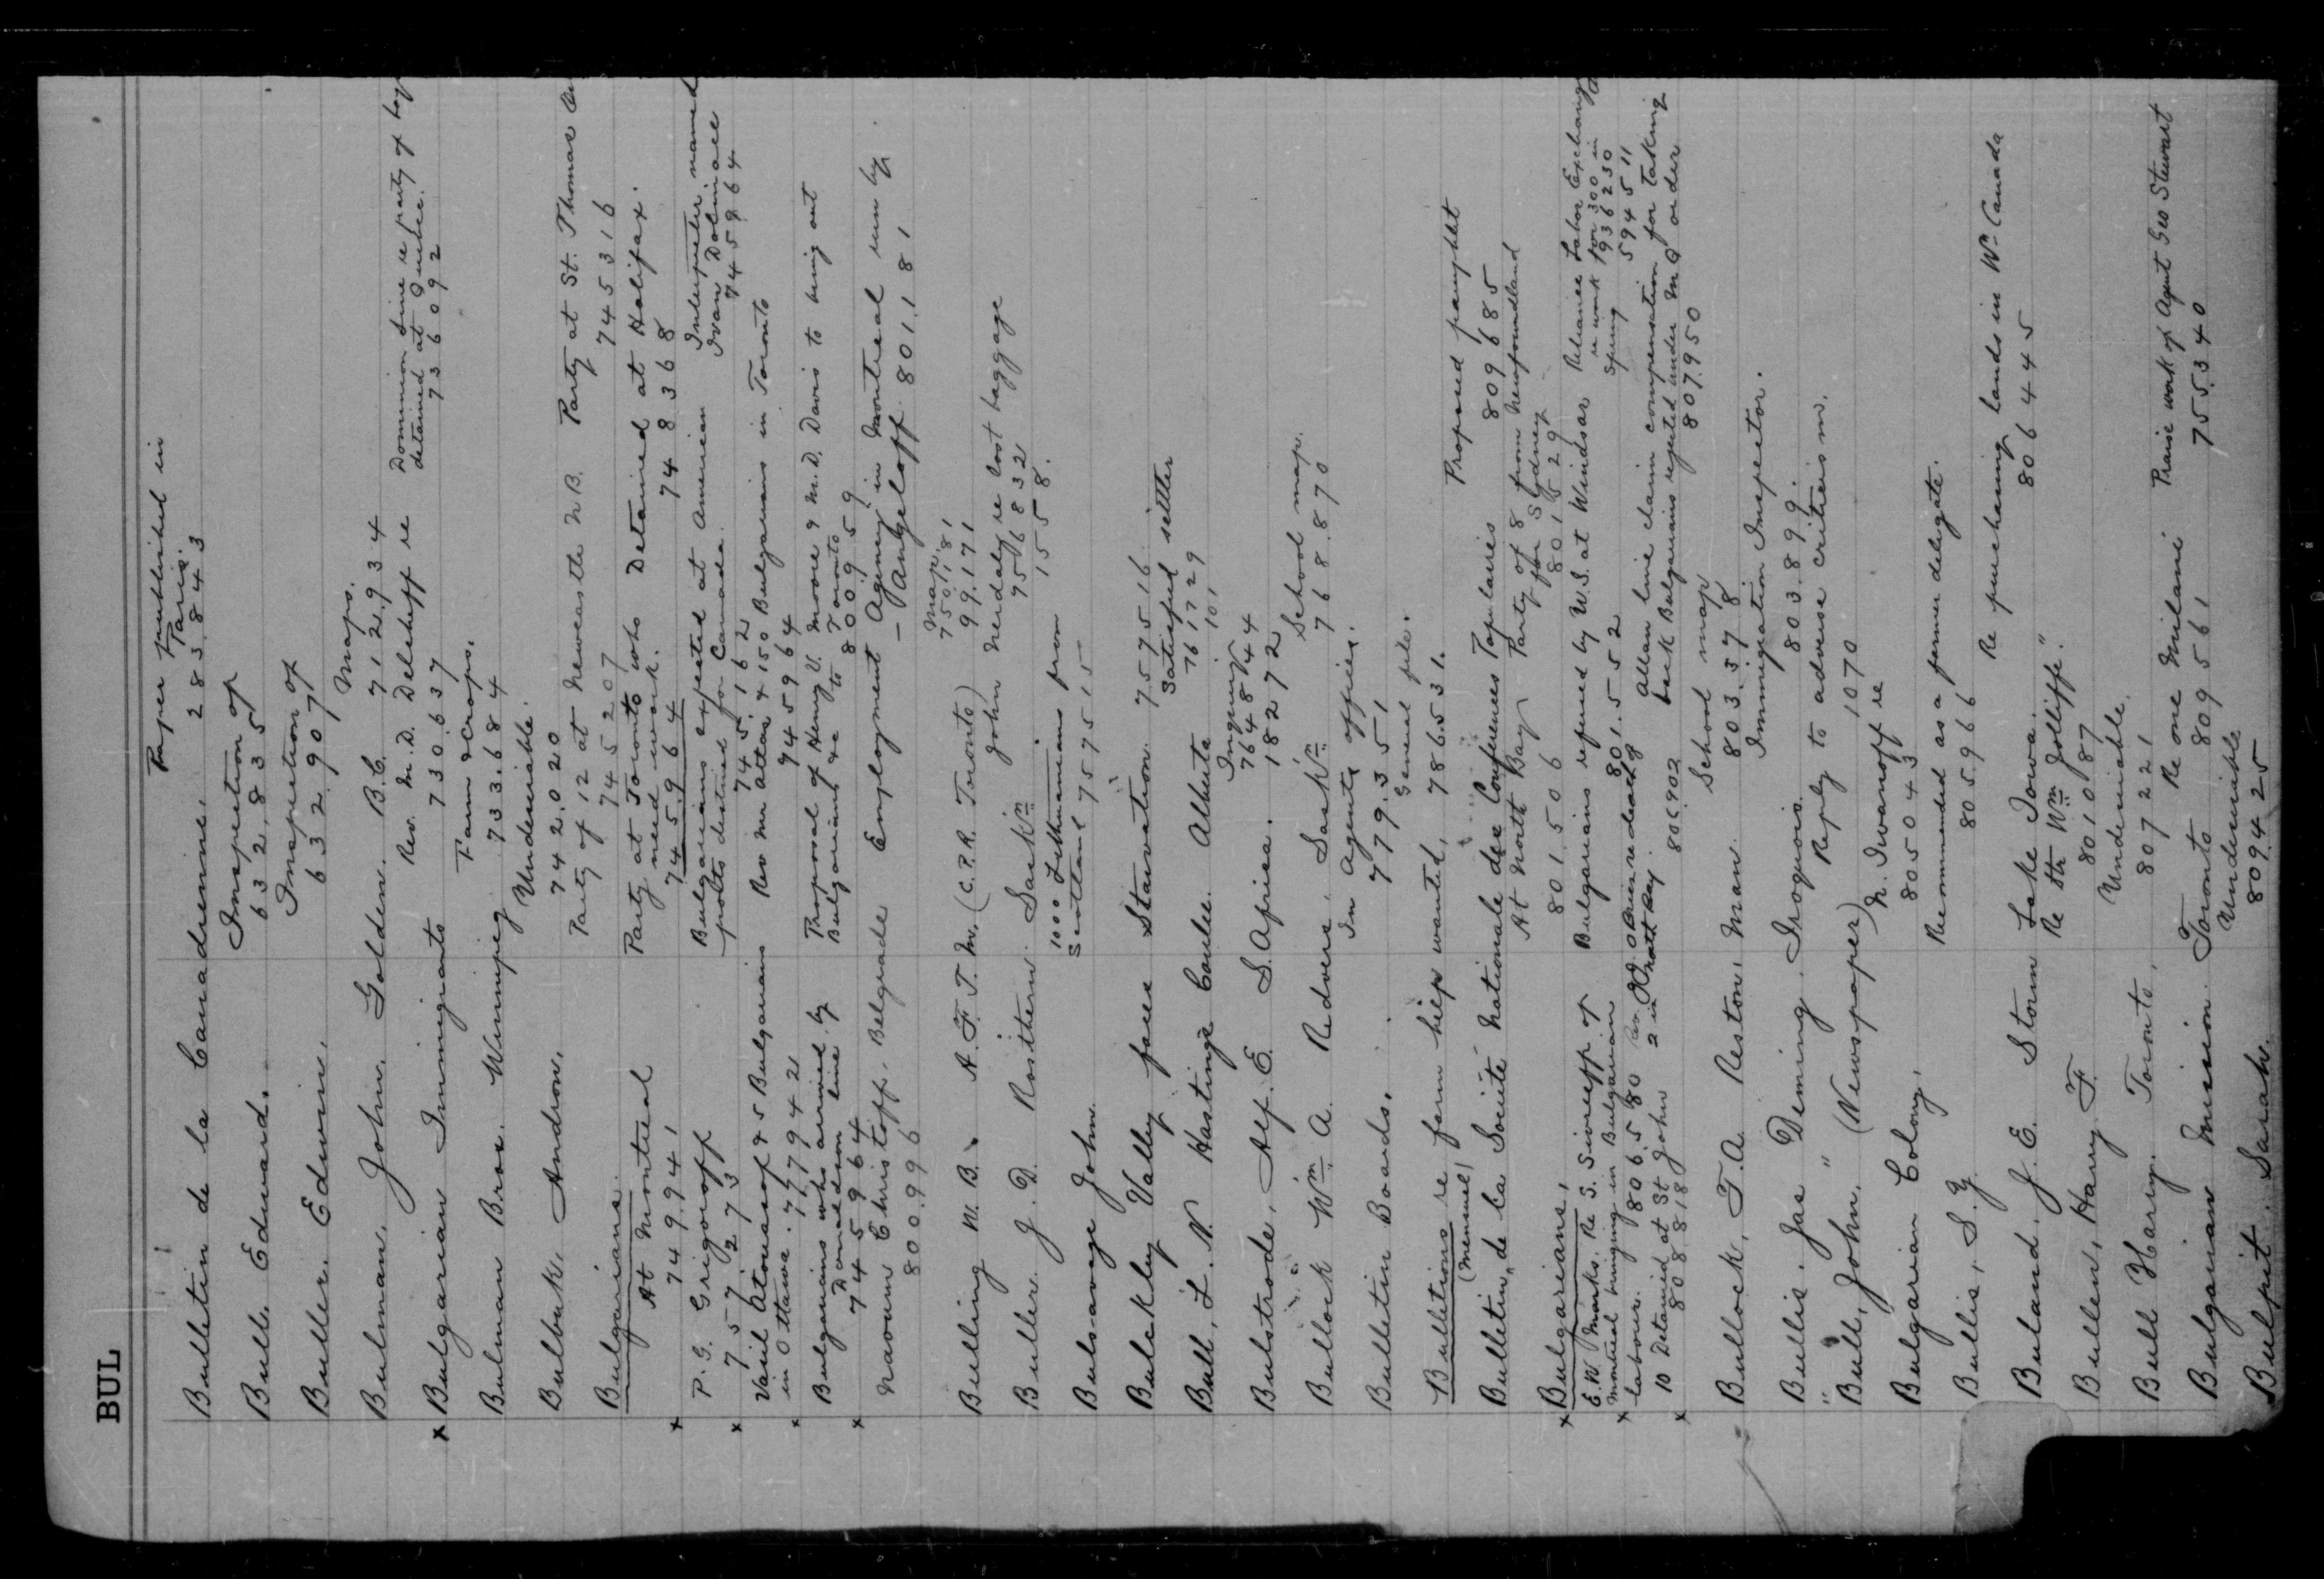 BUL
Bulletin de la Canadienne. Paper published in Paris. 283.843
Bull. Edward. Inspection of 632.835
Buller. Edwin. Inspection of 632.907
Bulman. John. Golden. B.C. Maps. 712.934
x Bulgarian Immigrants Rev. M.D. Delchoff re 730.637 Dominion Line re party of detained at Quebec. 736092
Bulman Bros. Winnipeg Farm & Crops. 733.684
Bulbuk. Andron. Undesirable. 742.020
Bulgarians. Party of 12 at Newcastle N.B. 745207 Party at St. Thomas 745316
At Montreal 749.941 Party at Toronto who need work. 745.964 Detained at Halifax. 748368
x P.G. Grigoroff 757.273 Bulgarians expected at American ports destined for Canada. 745.162 Interpreter named Ivan Dobrinoee 745964
x Vasil Atonasof & 5 Bulgarians in Ottawa. 777942 Rev Mr Attas & 150 Bulgarians in Toronto 745964
x Bulgarians who arrived by Donaldson line 745964 Proposal of Henry V. Moore & M.D. Davis to bring out Bulgarians &c to Toronto 800959
x Naoum Christoff. Belgrade 800.996 Employment Agency in Montreal run by - Angeloff. 801.181
Bulling W.B. A.F.T.M. (C.P.R. Toronto) Map. 750.181 99.171
Buller. J.D. Rosthern. Sask'n John Nerdaly re lost baggage 756832 1558.
Bulsavage John. 1000 Lithuanians from Scotland 757515
Bulckley Valley faces Starvation. 757516
Bull, L.N. Hastings Coulee. Alberta Satisfied settler 761729 101
Bulstrode, Alf. E. S. Africa. Inquiry 764844 182722
Bullock Wm A. Redvers. Sask'n School map. 768.870
Bulletin Boards. In Agents offices. 779.351
Bulletins re farm help wanted. General file. 786.531.
Bulletin, de la Société Nationale des Conferences Populaires Proposed pamphlet 809685
x Bulgarians, At North Bay 801506 Party of 8 from Newfoundland for Sydney 801529
E.W. Marks. Re S. Siveroff of Montreal bringing in Bulgarian labourers. 806.580 Bulgarians refused by U.S. at Windsor 801.552 Reliance Labor Exchange re work for 300 in Spring 936230 594511
x 10 Detained at St John 808.818 2 in North Bay. 806.902 Allan line claim compensation for taking back Bulgarians rejected under M O order 807.950
Bullock, T.A. Reston, Man. School map 803.378
Bullis. Jas Deming. Iroquois. Immigration Inspector. 803.899.
" Bull, John. " (Newspaper) Reply to adverse criticism. 1070
Bulgarian Colony. N. Iwanoff re 805043
Bullis, S.Y. Recommended as a farmer delegate. 805966
Buland, J.E. Storm Lake Iowa. Re purchasing lands in W. Canada 806445
Bullen, Harry F. Re Wm Jolliffe." 801087
Bull Harry. Toronto. Undesirable. 807221
Bulgarian Mission. Toronto Re one Milani 809561 Praise work of Agent Geo Stewart 755340
Bulpit. Sarah. Undesirable 809425